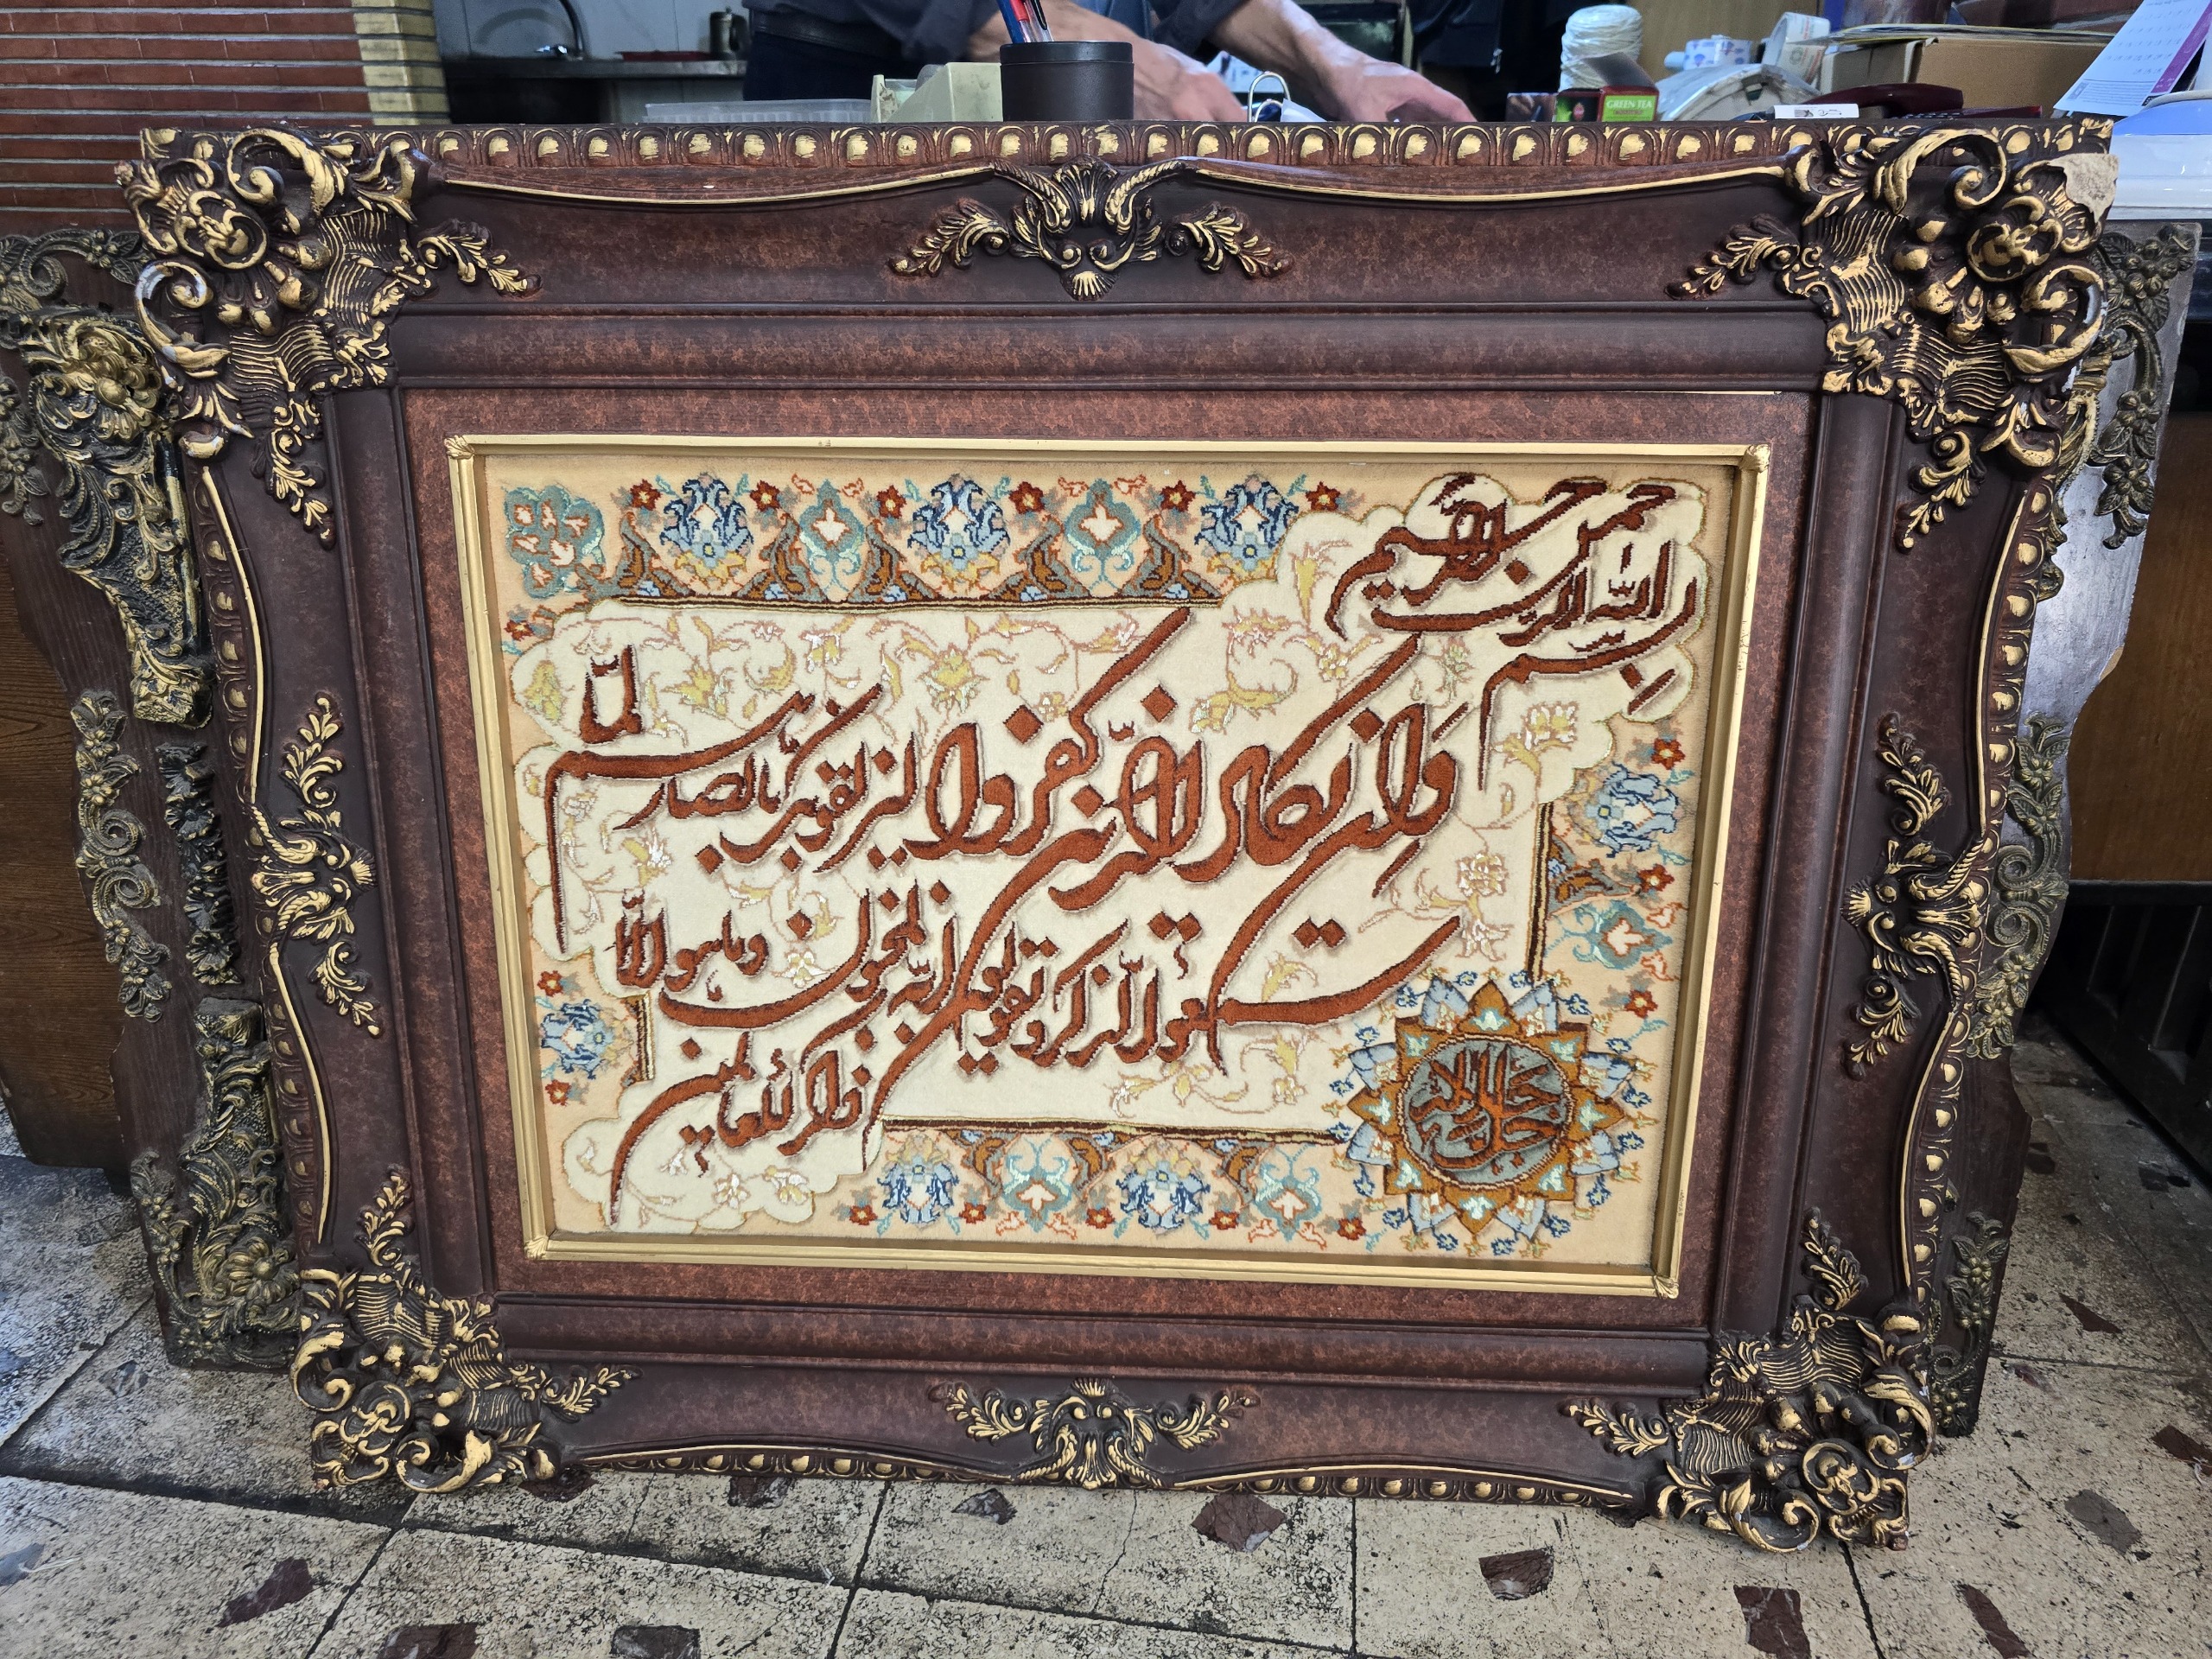 بسم الله الرحمن الرحیم
وَاِن یکاد الذین کفروا لیزلقونک بابصارهم لمّا
سمعوا الذکر و یقولون انّه لمجنون و ما هو الّا
ذکر للعالمین
جل جلاله
GREEN TEA